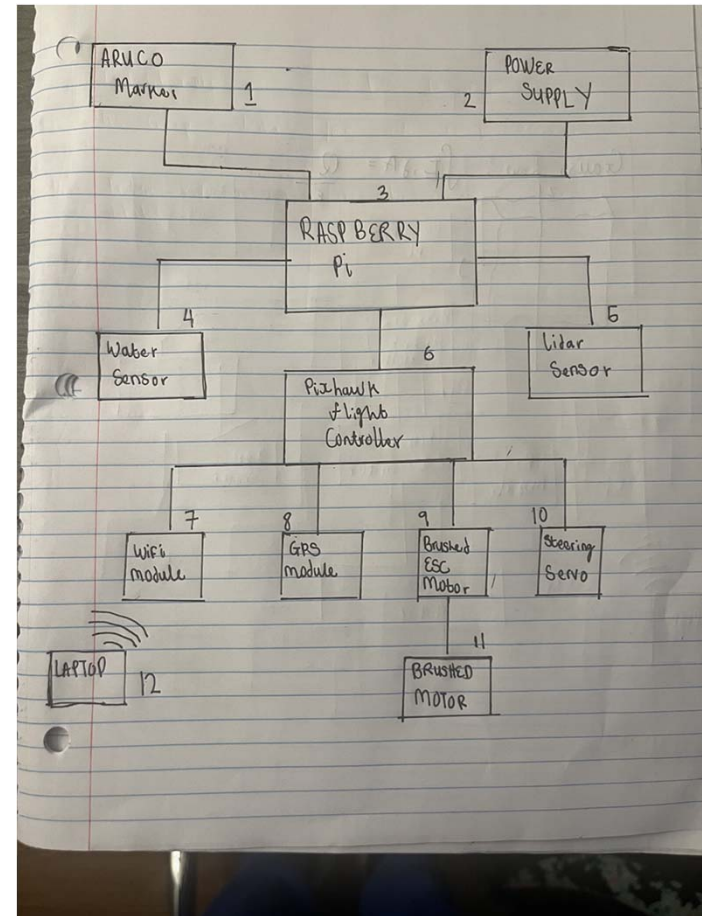 ARUCO
Marker
1
POWER
SUPPLY
2
3
RASPBERRY
Pi
4
Water
Sensor
5
Lidar
Sensor
6
Pixhawk
flight
Controller
7
WiFi
module
8
GPS
module
9
Brushed
ESC
Motor
10
Steering
Servo
11
BRUSHED
MOTOR
LAPTOP
12